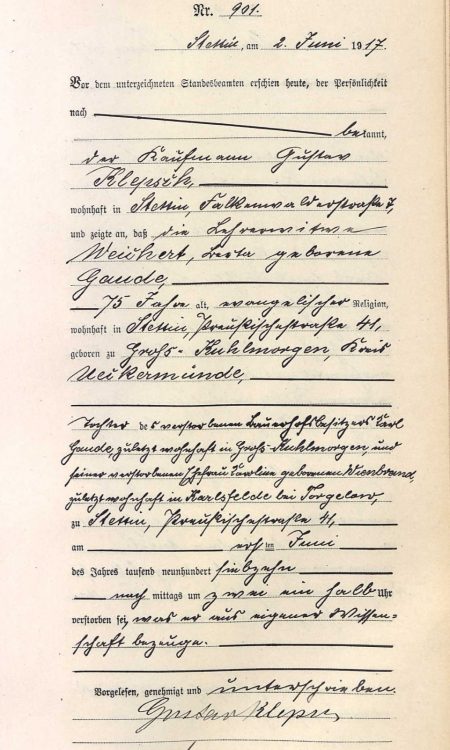 Nr. 901.
Stettin, am 2. Juni 1917.
Vor dem unterzeichneten Standesbeamten erschien heute, der Persönlichkeit
nach
bekannt,
der Kaufmann Gustav
Klepsch,
wohnhaft in Stettin, Falkenwalderstraße 7,
und zeigte an, daß die Lehrerwitwe
Weichert, Berta geborene
Gaude,
75 Jahre alt, evangelischer Religion,
wohnhaft in Stettin, Preußischestraße 41,
geboren zu Groß-Kuhlmorgen, Kreis
Ueckermünde,
Tochter des verstorbenen Bauerhofsbesitzers Karl
Gaude, zuletzt wohnhaft in Groß-Kuhlmorgen, und
seiner verstorbenen Ehefrau Karoline geborenen Wienbrand,
zuletzt wohnhaft in Karlsfelde bei Torgelow,
zu Stettin, Preußischestraße 41,
am ersten Juni
des Jahres tausend neunhundert siebzehn
nach mittags um zwei ein halb Uhr
verstorben sei, was er aus eigener Wissen-
schaft bezeuge.
Vorgelesen, genehmigt und unterschrieben.
Gustav Klepsch